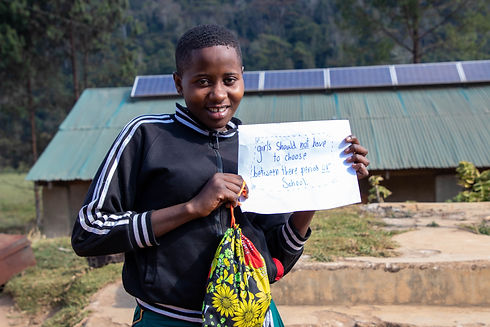 girls should not have
to choose
between there period or
School